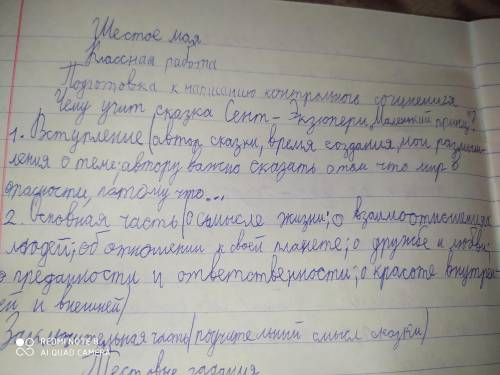 Шестое мая
Классная работа
Подготовка к написанию контрольного сочинения
Чему учит сказка Сент-Экзюпери „Маленький принц"?
1. Вступление (автор сказки, время создания, мои размыш
ления о теме: автору важно сказать о том что мир в
опасности, потому что...
2. Основная часть (о смысле жизни; о взаимоотношениях
людей; об отношении к своей планете; о дружбе и любви
о преданности и ответственности; о красоте внутрен
ей и внешней)
Заключительная часть (поучительный смысл сказки)
Тестовые задания
REDMI NOTE 8
AI QUAD CAMERA